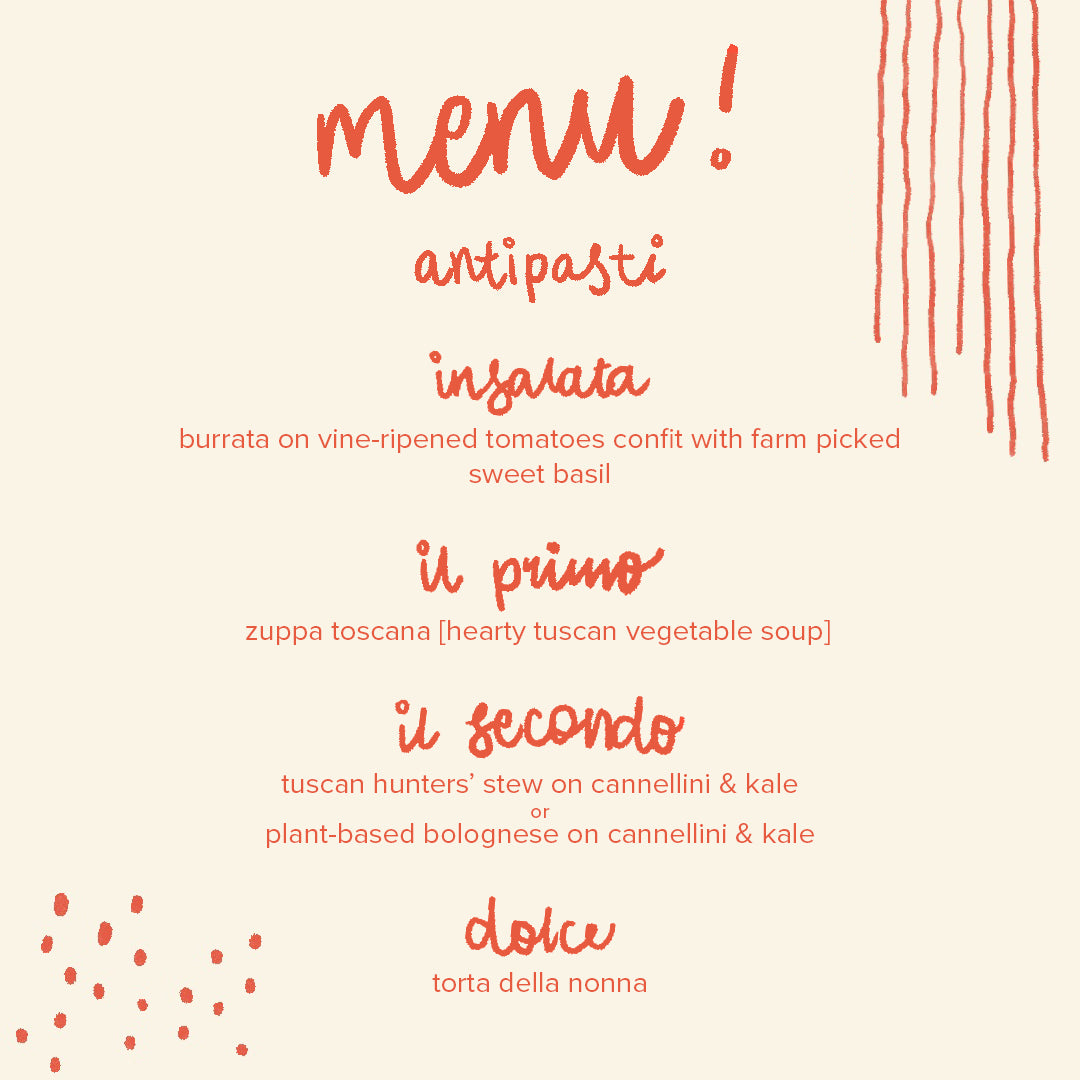 menu!
antipasti
insalata
burrata on vine-ripened tomatoes confit with farm picked
sweet basil
il primo
zuppa toscana [hearty tuscan vegetable soup]
il secondo
tuscan hunters’ stew on cannellini & kale
or
plant-based bolognese on cannellini & kale
dolce
torta della nonna